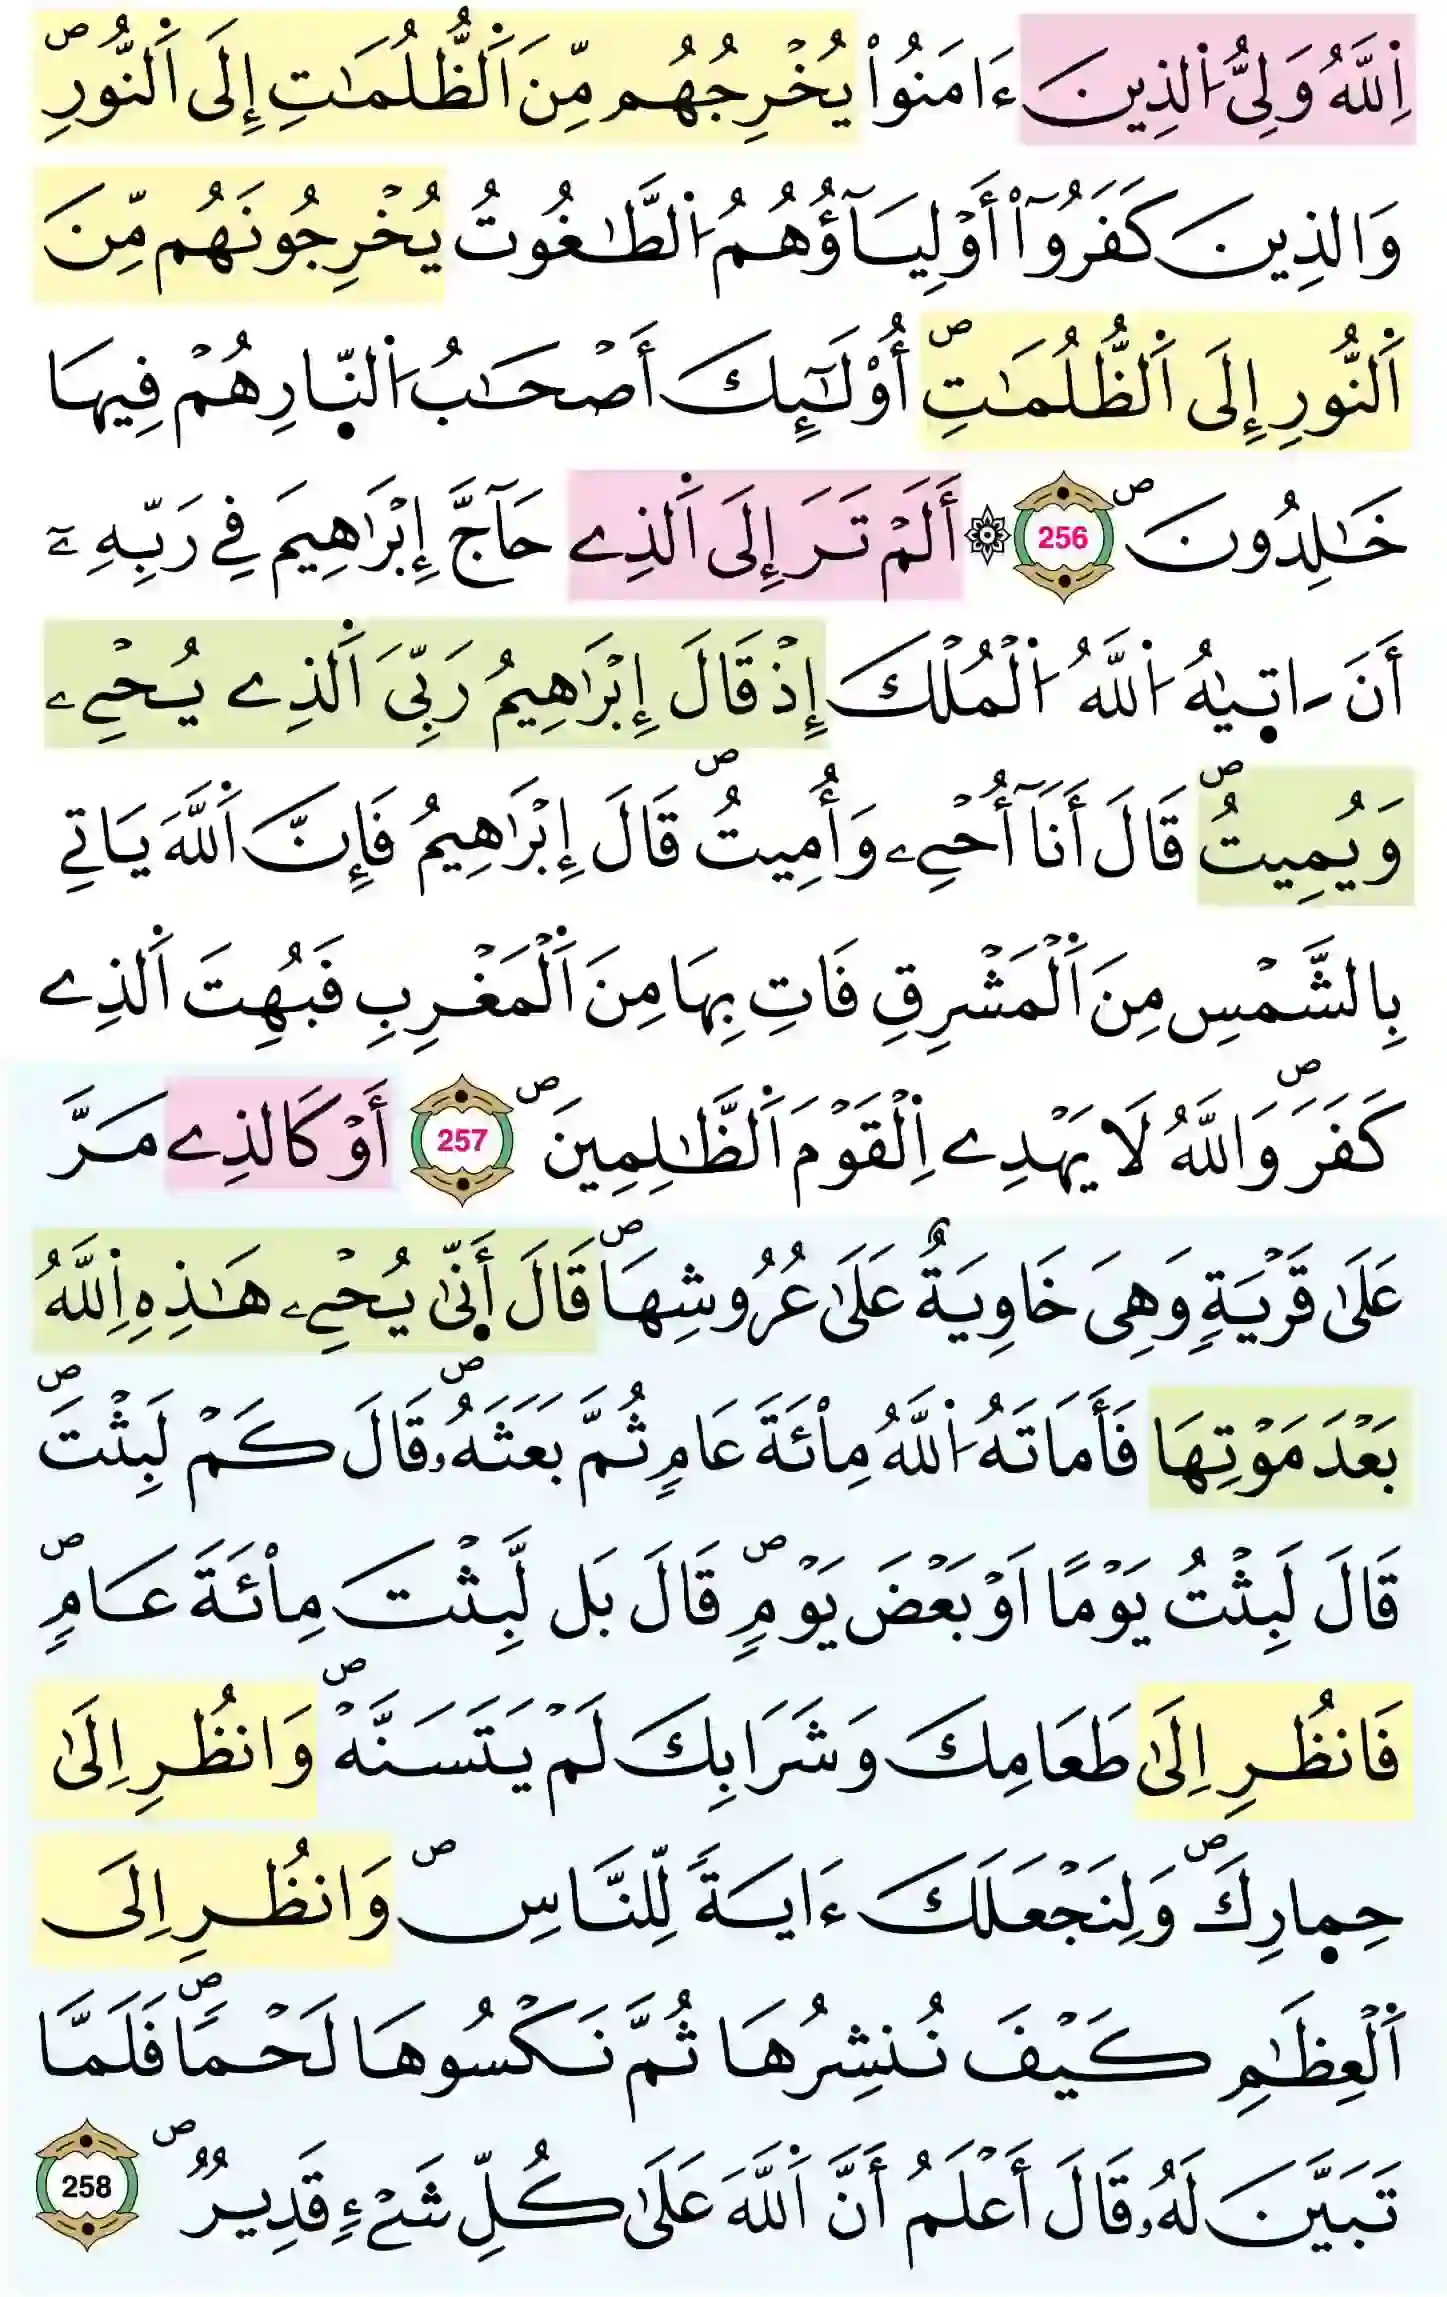 اِ۬للَّهُ وَلِيُّ اُ۬لذِينَ ءَامَنُواْ يُخْرِجُهُم مِّنَ اَ۬لظُّلُمَٰتِ إِلَى اَ۬لنُّورِۖ
وَالذِينَ كَفَرُوٓاْ أَوْلِيَآؤُهُمُ اُ۬لطَّٰغُوتُ يُخْرِجُونَهُم مِّنَ
اَ۬لنُّورِ إِلَى اَ۬لظُّلُمَٰتِۖ أُوْلَٰٓئِكَ أَصْحَٰبُ اُ۬لنّ۪ارِ هُمْ فِيهَا
خَٰلِدُونَۖ 256 ۞ أَلَمْ تَرَ إِلَى اَ۬لذِے حَآجَّ إِبْرَٰهِيمَ فِے رَبِّهِۦٓ
أَنَ اٰت۪يٰهُ اُ۬للَّهُ اُ۬لْمُلْكَ إِذْ قَالَ إِبْرَٰهِيمُ رَبِّيَ اَ۬لذِے يُحْيِۦ
وَيُمِيتُۖ قَالَ أَنَآ أُحْيِۦ وَأُمِيتُۖ قَالَ إِبْرَٰهِيمُ فَإِنَّ اَ۬للَّهَ يَاتِے
بِالشَّمْسِ مِنَ اَ۬لْمَشْرِقِ فَاتِ بِهَا مِنَ اَ۬لْمَغْرِبِ فَبُهِتَ اَ۬لذِے
كَفَرَۖ وَاللَّهُ لَا يَهْدِے اِ۬لْقَوْمَ اَ۬لظَّٰلِمِينَۖ 257 أَوْ كَالذِے مَرَّ
عَلَىٰ قَرْيَةٖ وَهِيَ خَاوِيَةٌ عَلَىٰ عُرُوشِهَاۖ قَالَ أَنّ۪يٰ يُحْيِۦ هَٰذِهِ اِ۬للَّهُ
بَعْدَ مَوْتِهَا فَأَمَاتَهُ اُ۬للَّهُ مِاْئَةَ عَامٖ ثُمَّ بَعَثَهُۥۖ قَالَ كَمْ لَبِثْتَۖ
قَالَ لَبِثْتُ يَوْمًا اَوْ بَعْضَ يَوْمٖۖ قَالَ بَل لَّبِثْتَ مِاْئَةَ عَامٖۖ
فَانظُرِ اِلَىٰ طَعَامِكَ وَشَرَابِكَ لَمْ يَتَسَنَّهْۖ وَانظُرِ اِلَىٰ
حِم۪ارِكَۖ وَلِنَجْعَلَكَ ءَايَةٗ لِّلنَّاسِۖ وَانظُرِ اِلَى
اَ۬لْعِظَٰمِ كَيْفَ نُنشِرُهَا ثُمَّ نَكْسُوهَا لَحْمٗاۖ فَلَمَّا
تَبَيَّنَ لَهُۥ قَالَ أَعْلَمُ أَنَّ اَ۬للَّهَ عَلَىٰ كُلِّ شَےْءٖ قَدِيرٞۖ 258